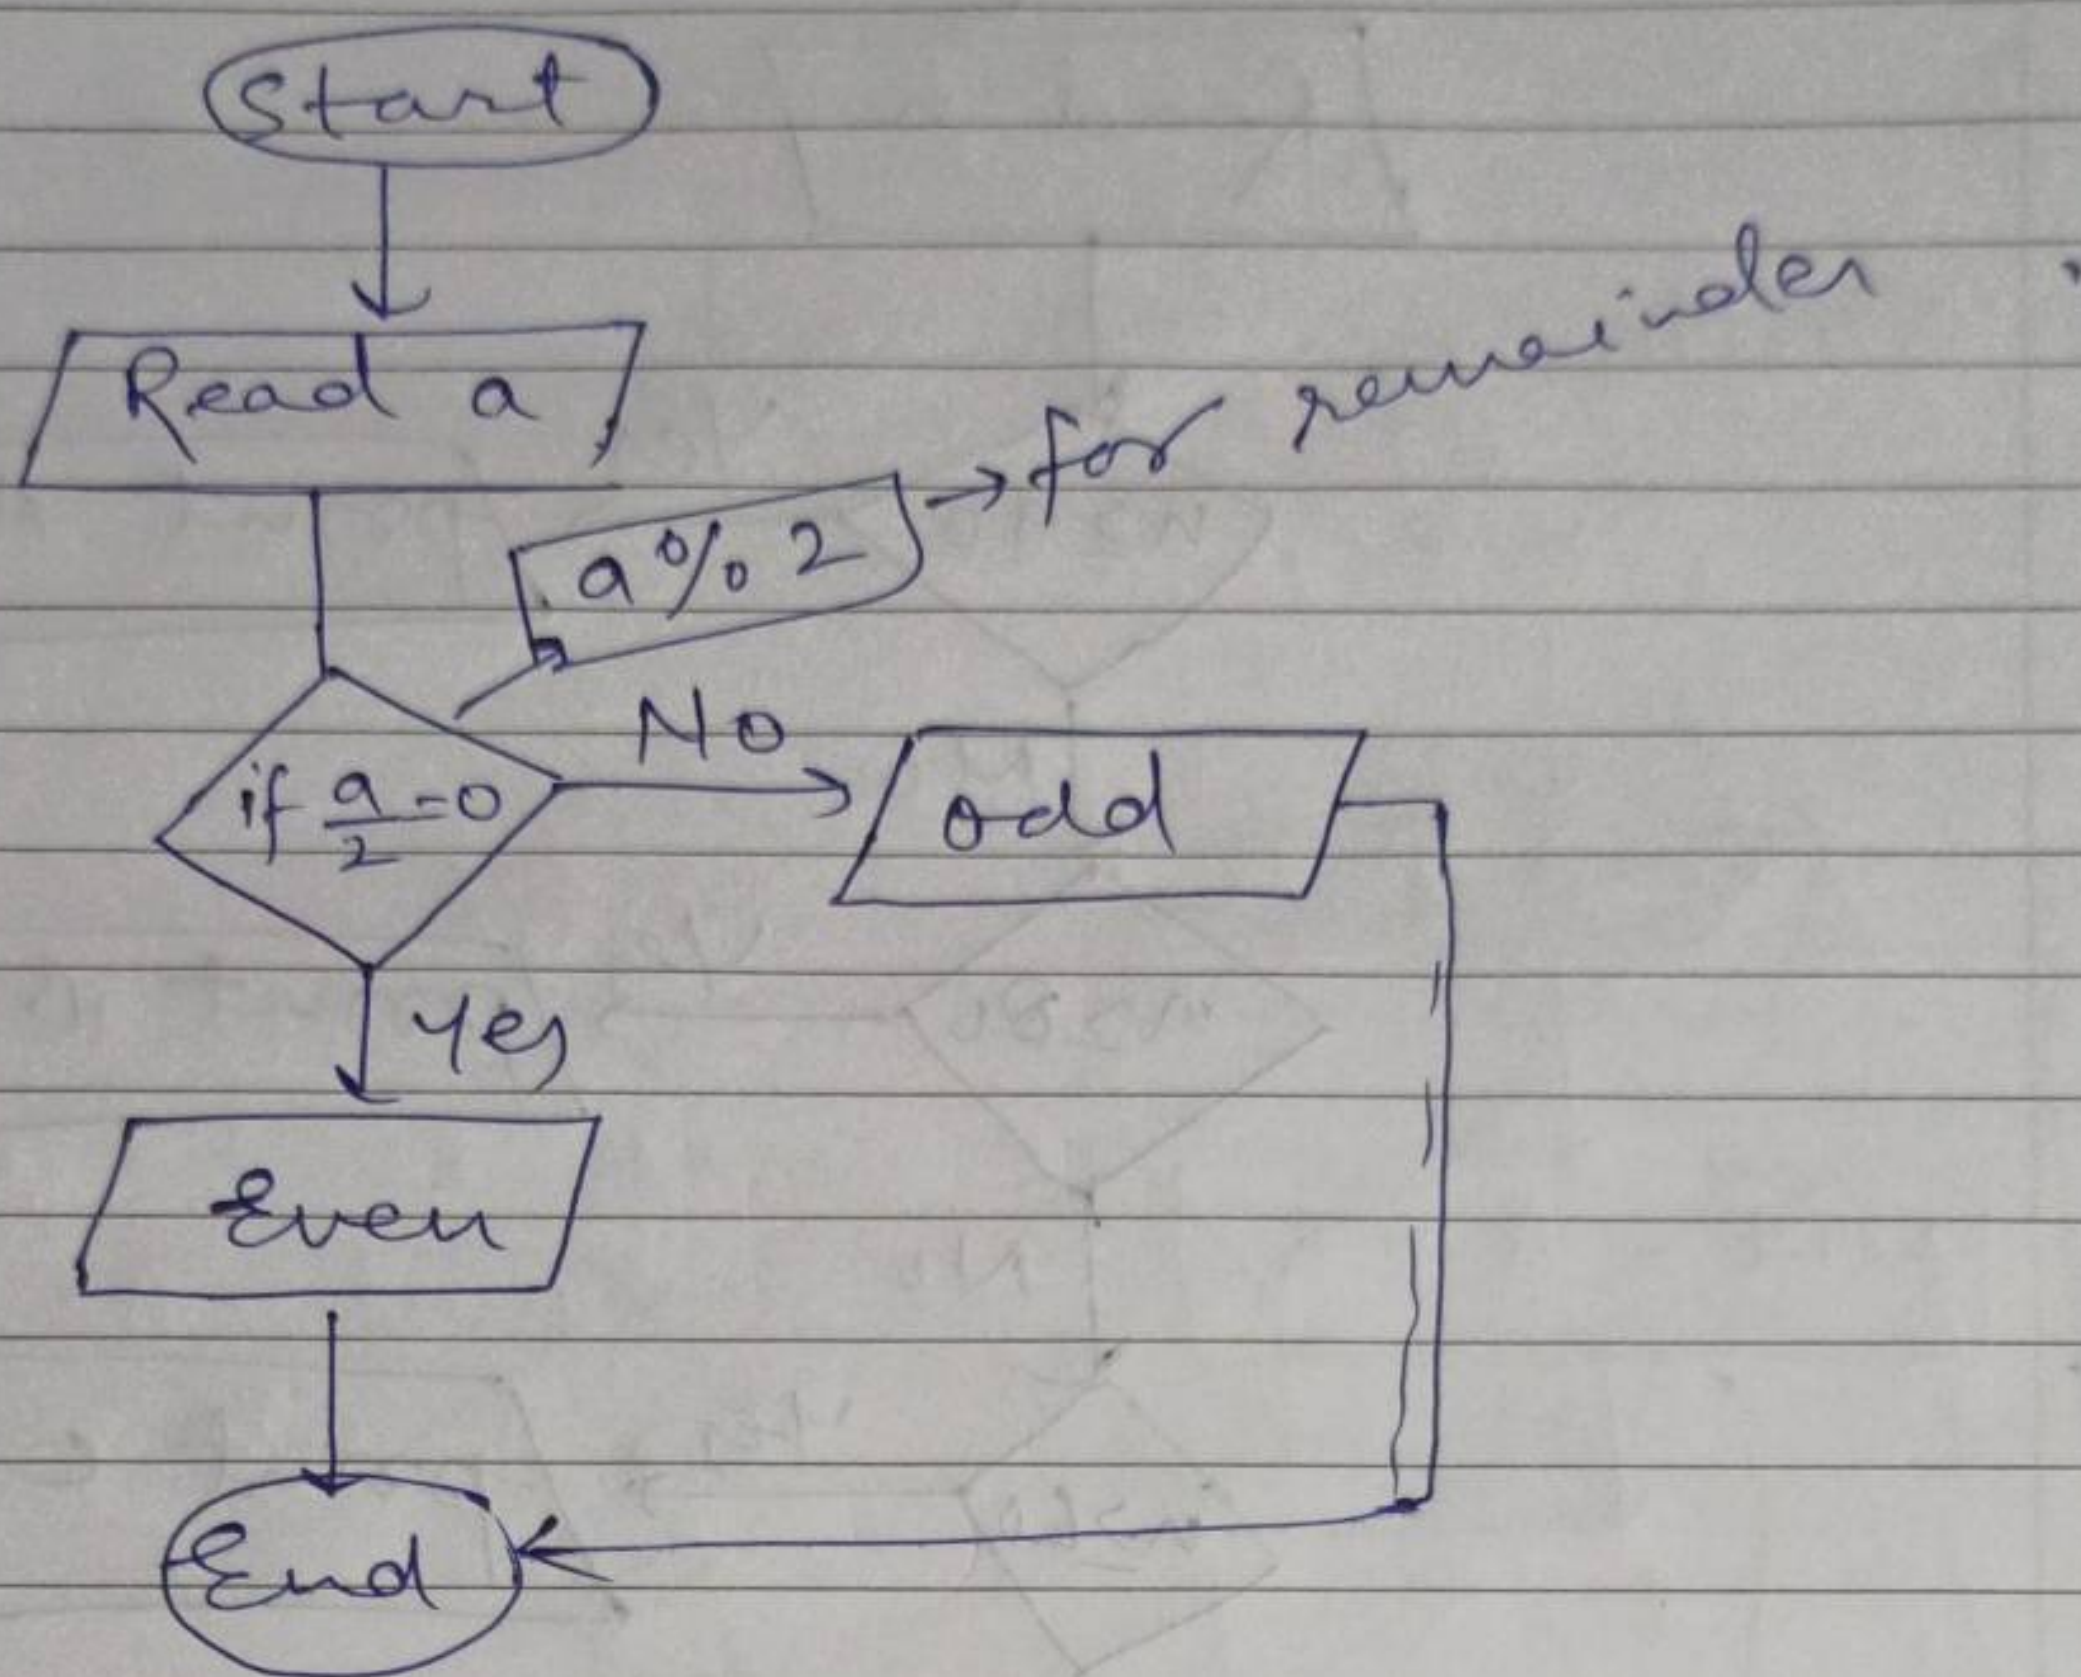 Start
Read a
a % 2 → for remainder
No
if a/2 = 0
odd
Yes
Even
End